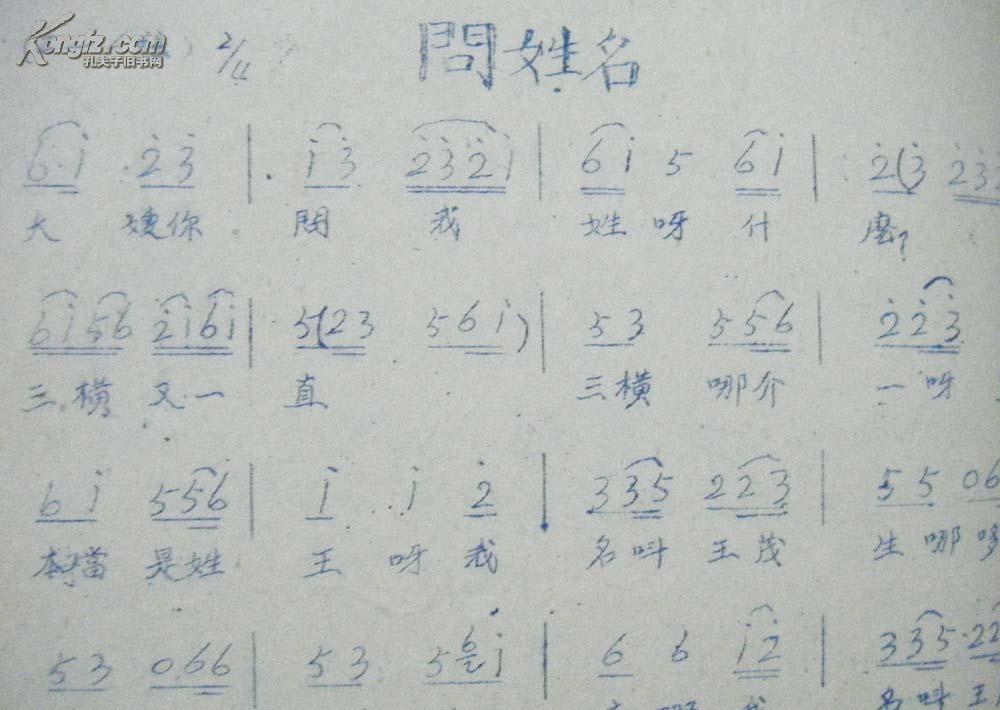 Kongfz.com
孔夫子旧书网
2/4
問姓名
6·i 2̇ 3̇ | i 3̇ 2̇3̇2̇i | 6 i 5 6 i | 2̇(3̇ 2̇3̇
大 嫂你 問 我 姓 呀 什 麽?
6i56 2̇i6i | 5(23 56i) | 53 556 | 2̇2̇3̇
三横 又一 直 三横 哪介 一呀
6i 556 | i i 2̇ | 335 223 | 55 06
本當 是姓 王 呀 我 名呌 王茂 生哪
53 066 | 53 5 i | 6 6 i2̇ | 335·22
名呌王